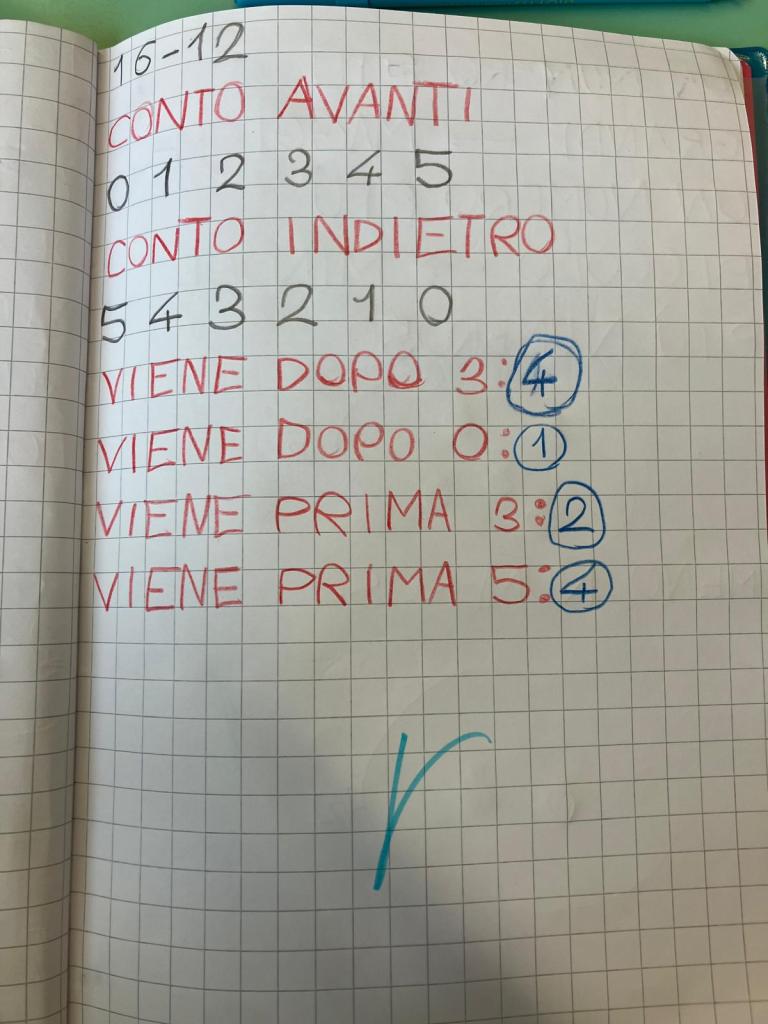 16-12
CONTO AVANTI
0 1 2 3 4 5
CONTO INDIETRO
5 4 3 2 1 0
VIENE DOPO 3:4
VIENE DOPO 0:1
VIENE PRIMA 3:2
VIENE PRIMA 5:4